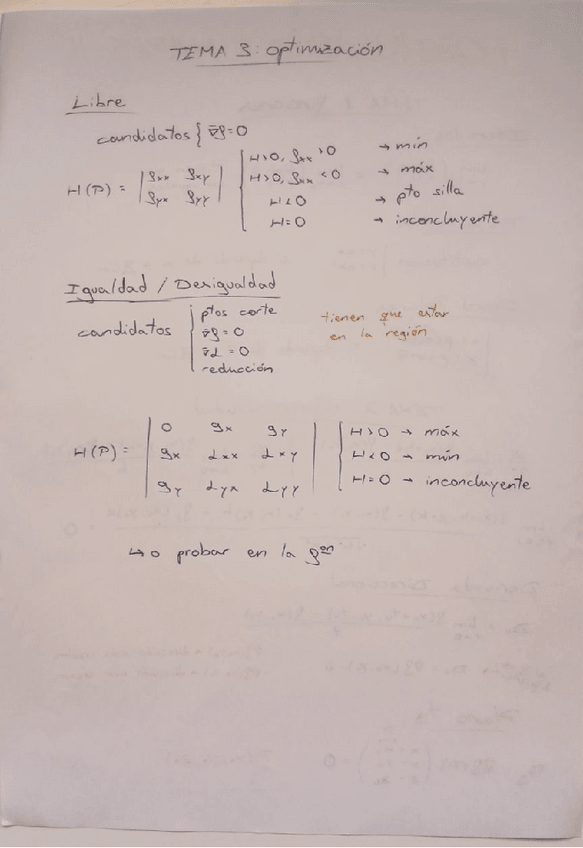 TEMA 3: Optimización
Libre
candidatos { ∇f=0
H(P) = | fxx fxy |
| fyx fyy |
H>0, fxx>0 → mín
H>0, fxx<0 → máx
H<0 → pto silla
H=0 → inconcluyente
Igualdad / Desigualdad
candidatos
ptos corte
∇f=0
∇L=0
reducción
tienen que estar
en la región
H(P) =
| 0 gx gy |
| gx Lxx Lxy |
| gy Lyx Lyy |
H>0 → máx
H<0 → mín
H=0 → inconcluyente
↳ o probar en la fºⁿ